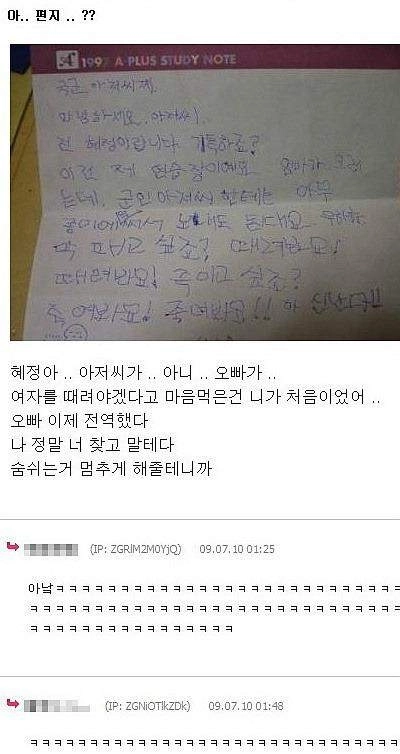 아.. 편지 .. ??
1997 A PLUS STUDY NOTE
국군 아저씨께.
안녕하세요. 아저씨.
전 혜정이랍니다. 기특하죠?
이건 제 연습장이에요
는데, 군인 아저씨 한테는 아무
종이에 써서 보내도 된대요
막 패고 싶죠? 때려봐요!
때려봐요! 죽이고 싶죠?
죽여봐요! 죽여봐요!! 아 신난다!!
혜정아 .. 아저씨가 .. 아니 .. 오빠가 ..
여자를 때려야겠다고 마음먹은건 니가 처음이었어 ..
오빠 이제 전역했다
나 정말 너 찾고 말테다
숨쉬는거 멈추게 해줄테니까
(IP: ZGRlM2M0YjQ) 09.07.10 01:25
아낰ㅋㅋㅋㅋㅋㅋㅋㅋㅋㅋㅋㅋㅋㅋㅋㅋㅋㅋㅋㅋㅋㅋㅋㅋㅋㅋ
ㅋㅋㅋㅋㅋㅋㅋㅋㅋㅋㅋㅋㅋㅋㅋㅋㅋㅋㅋㅋㅋㅋㅋㅋㅋㅋㅋㅋ
ㅋㅋㅋㅋㅋㅋㅋㅋㅋㅋㅋㅋㅋㅋㅋ
(IP: ZGNiOTlkZDk) 09.07.10 01:48
ㅋㅋㅋㅋㅋㅋㅋㅋㅋㅋㅋㅋㅋㅋㅋㅋㅋㅋㅋㅋㅋㅋㅋㅋㅋㅋㅋㅋ